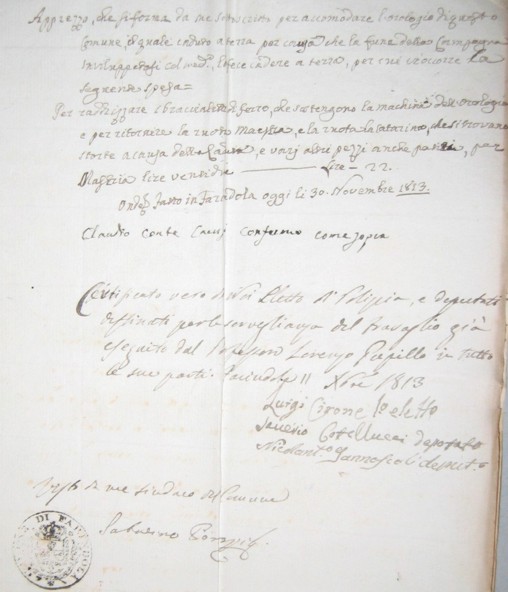 Apprezzo, che si forma da me sottoscritto per accomodare l'orologio di questo
Comune, il quale caduto a terra per causa che la fune della Campana
inviluppatosi col med.º, lo fece cadere a terra, per cui vi occorre la
seguente spesa=
Per raddrizzare i braccialetti di ferro, che sostengono la machina dell'orologio
e per ritornire la ruota Maestra, e la ruota la catarina, che si trovano
storte a causa della caduta, e varj altri pezzi anche patiti, per
Magistria lire ventidue ——— Lire = 22.
Onde fatto in Faradola oggi li 30. Novembre 1813.
Claudio Conte Causi confermo come sopra
Certificato vero da noi Eletto di Polizia, e deputati
destinati per la sorveglianza del travaglio già
eseguito dal Professor Lorenzo Pupillo in tutte
le sue parti. 11 Nbre 1813
Luigi Cirone Eletto
Saverio Cotellucci deputato
Nicolant.º Iannascoli deputº
Visto da me Sindaco del Comune
Sabatino
COMUNE DI FARADOLA